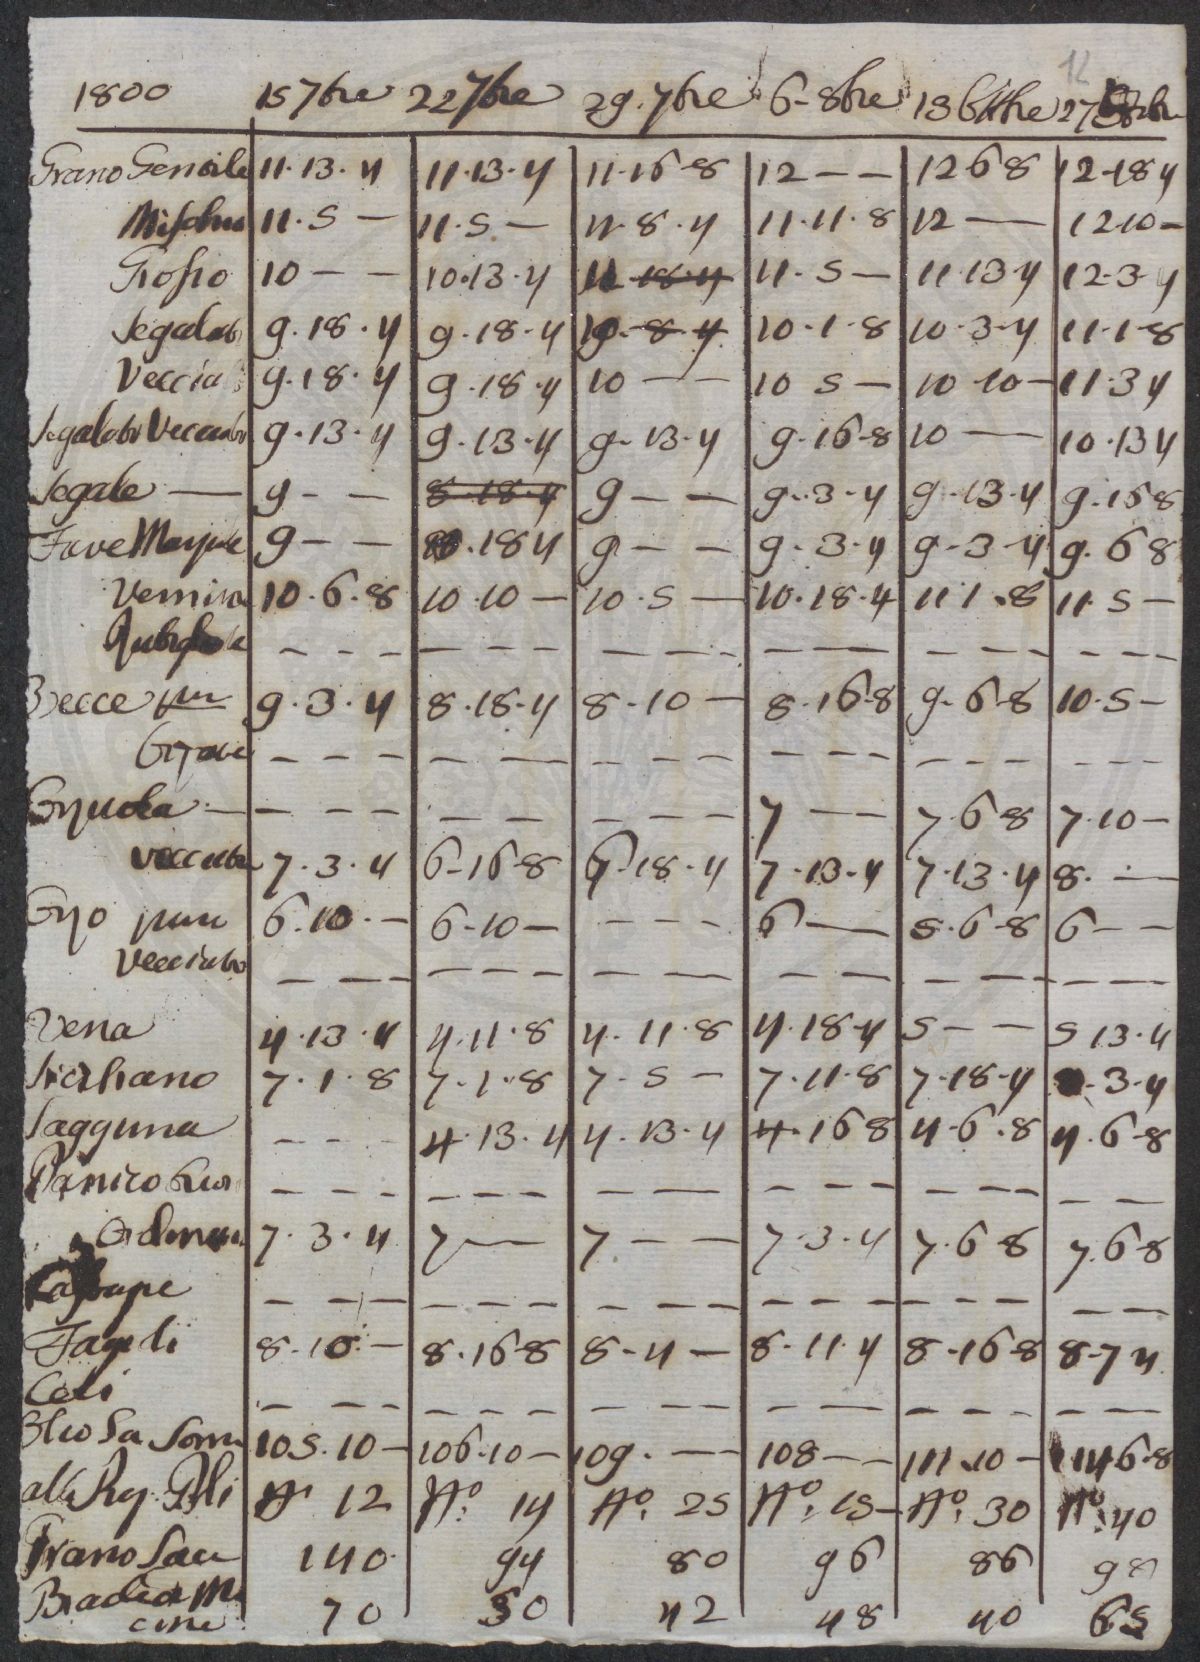 12
1800 15 7bre 22 7bre 29. 7bre 6-8bre 13 8bre 27 8bre
Grano Gentile 11.13.4 11.13.4 11.16-8 12 - - 12 6 8 12-18 4
Mischio 11.5 - 11.5 - 11.8.4 11.11.8 12 - 12 10 -
Grosso 10 - - 10.13.4 11.18.4 11.5 - 11 13 4 12-3-4
Segalato 9.18.4 9.18-4 10-8-4 10-1-8 10-3-4 11-1-8
Vecciato 9.18.4 9.18.4 10 - - 10 5 - 10 10 - 11.3 4
Segalato Vecciato 9.13.4 9.13.4 9-13-4 9.16-8 10 - 10.13 4
Segale - 9 - - 8.18.4 9 - - 9.3-4 9 13.4 9.16 8
Fave 9 - - .18 4 9 - - 9.3.4 9-3-4 9.6 8
Vernina 10.6.8 10 10 - 10.5 - 10.18.4 11 1.8 11.5 -
- - - - - - - - - - - - - - - - - -
Vecce pure 9.3.4 8.18-4 8-10 - 8.16-8 9-6-8 10-5 -
- - - - - - - - - - - - - - - - -
- - - - - - - - - - 7 - - 7.6 8 7.10 -
vecciata 7.3.4 6-16-8 6-18.4 7.13.4 7.13.4 8. -
puro 6.10 - 6-10 - - - - - 6 - 5.6-8 6 - -
Vecciato - - - - - - - - - - - - - - - -
Vena 4.13.4 4.11.8 4.11.8 4.18-4 5 - - 5 13.4
Siciliano 7.1.8 7.1.8 7.5 - 7.11-8 7.18-4 .3-4
Saggina - - - 4.13.4 4.13-4 4.16 8 4-6.8 4.6-8
Panico - - - - - - - - - - - - - - - -
7.3.4 7 - 7 - - 7.3.4 7.6 8 7.6-8
- - - - - - - - - - - - - - - -
Fagioli 8-10 - 8.16-8 8-4 - 8-11.4 8-16-8 8-7 4
Ceci - - - - - - - - - - - - - - - -
Olio La Soma 105.10 - 106.10 - 109. - 108 - - 111.10 - 114 6-8
N° 12 N° 14 N°. 25 N°. 15 - N°. 30 N° 40
Grano Sacc 140 94 80 96 86 98
70 50 42 48 40 65